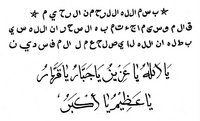 * ب س م ا ل ل ه ا ل ر ح م ن ا ل ر ح ي م *
ق ا ل م و س ى م ا ج ء ت م ب ه ا ل س ح ر ا ن ا ل ل ه س ي
ب ط ل ه ا ن ا ل ل ه ل ا ي ص ل ح ع م ل ا ل م ف س د ي ن
يَا اَللهُ يَا عَزِيْزُ يَا جَبَّارُ يَا قَهَّارُ
يَا عَظِيْمُ يَا أَكْبَرُ